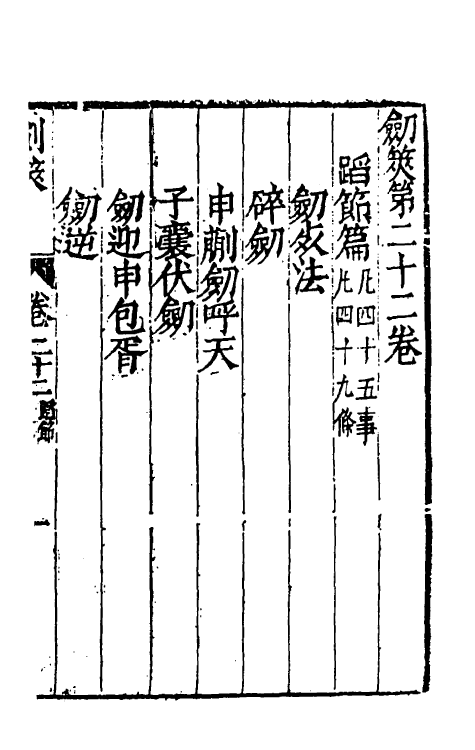 劍筴第二十二卷
蹈節篇 凡四十五事
凡四十九條
劒死法
碎劒
申蒯劒呼天
子囊伏劍
劒迎申包胥
劒逆
劍筴 卷二十二 蹈節 一